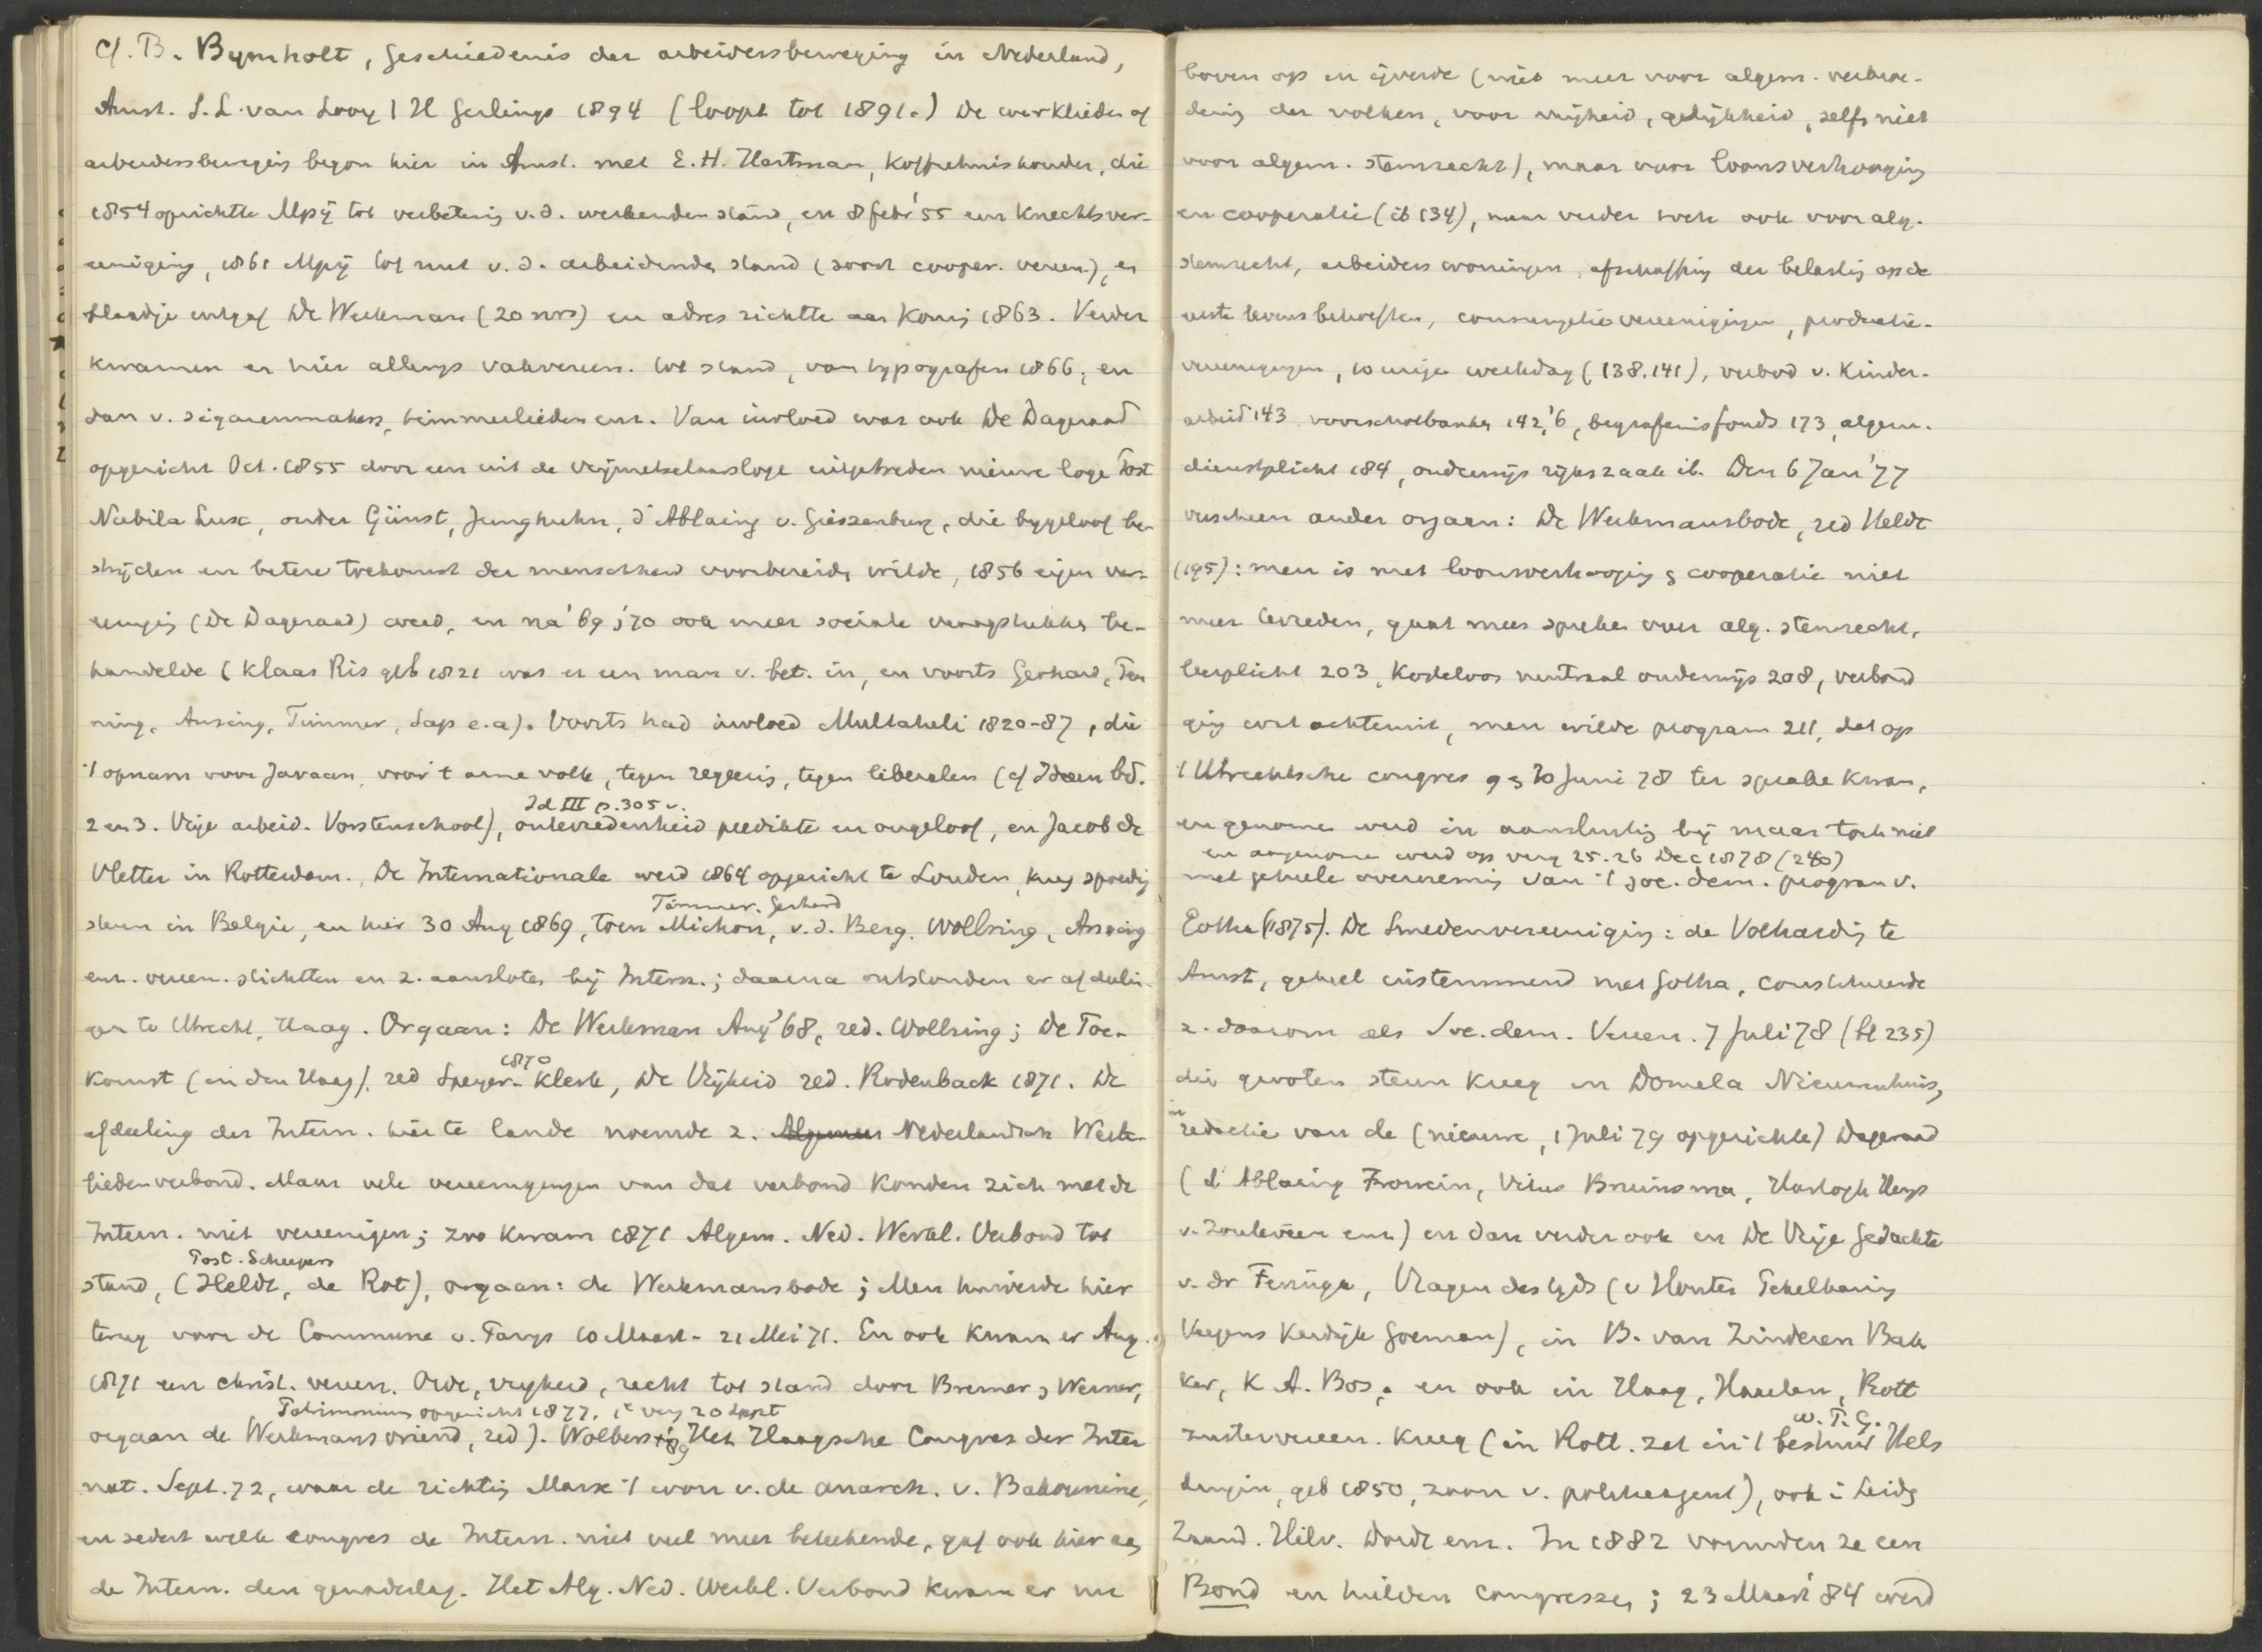 cf. B. Bymholt, Geschiedenis der arbeidersbeweging in Nederland,
Amst. S.L. van Looy / H Gerlings 1894 (loopt tot 1891.) De werklieden of
arbeidersbewegig begon hier in Amst. met E.H. Hartman, koffiehuishouder, die
1854 oprichtte Mpij tot verbeterig v.d. werkenden stand, en 8 febr '55 een knechtsver-
eeniging, 1861 Mpij tot nut v.d. arbeidende stand (soort cooper. vereen.), en
blaadje uitgaf De Werkman (20 nrs) en adres richtte aan Konig 1863. Verder
kwamen er hier allengs vakvereen. tot stand, van typografen 1866, en
dan v. sigarenmakers, timmerlieden enz. Van invloed was ook De Dageraad
opgericht Oct. 1855 door een uit de vrijmetselaarsloge uitgetreden nieuwe loge Post
Nubila Lux, onder Günst, Junghuhn, d'Ablaing v. Giessenburg, die bygeloof be-
strijden en betere toekomst der menschheid voorbereide wilde, 1856 eigen ver-
eenigig (De Dageraad) werd, en na '69 à '70 ook meer sociale vraagstukken be-
handelde (Klaas Ris geb 1821 was er een man v. bet. in, en voorts Gerhard, Ten
ning, Ansing, Timmer, Sap e.a). Voorts had invloed Multatuli 1820-87, die
't opnam voor Javaan, voor 't arme volk, tegen regeerig, tegen liberalen (cf Ideen bd.
Id III p. 305 v.
2 en 3. Vrije arbeid. Vorstenschool), ontevredenheid predikte en ongeloof, en Jacob de
Vletter in Rotterdam. De Internationale werd 1864 opgericht te Londen, kreg spoedig
Timmer. Gerhard
steun in Belgie, en hier 30 Aug 1869, toen Michon, v.d. Berg, Wollring, Ansing
enz. vereen. stichtten en z. aansloten bij Intern.; daarna ontstonden er afdelin-
gen te Utrecht, Haag. Orgaan: De Werkman Aug '68, red. Wollring; De Toe-
1870
komst (in den Haag), red Speyer-Klerk, De Vrijheid red. Rodenback 1871. De
afdeeling der Intern. hier te lande noemde z. Nederlandsch Werk-
liedenverbond. Maar vele vereenigingen van dat verbond konden zich met de
Intern. niet vereenigen; zoo kwam 1871 Algem. Ned. Werkl. Verbond tot
Post. Scheepers
stand, (Heldt, de Rot), orgaan: de Werkmansbode; Men huiverde hier
terug voor de Commune v. Parys 10 Maart - 21 Mei 71. En ook kwam er Aug.
1871 een christ. vereen. Orde, vryheid, recht tot stand door Bremer & Werner,
Patrimonium opgericht 1877. 1e verg 20 Sept
orgaan de Werkmansvriend, red). Wolbers † '89. Het Haagsche Congres der Inter
nat. Sept. 72, waar de richtig Marx 't won v. de anarch. v. Bakounine,
en sedert welk congres de Intern. niet veel meer beteekende, gaf ook hier aan
de Intern. den genadeslag. Het Alg. Ned. Werkl. Verbond kwam er nu
boven op en ijverde (niet meer voor algem. verbroe-
derig der volken, voor vrijheid, gelijkheid, zelfs niet
voor algem. stemrecht), maar voor loonsverhooging
en cooperatie (ib 134), maar verder toch ook voor alg.
stemrecht, arbeiderswoningen, afschaffing der belastig op de
eerste levensbehoeften, consumptievereenigingen, productie-
vereenigingen, 10 urige werkdag (138.141), verbod v. kinder-
arbeid 143 voorschotbanken 142,'6, begrafenisfonds 173, algem.
dienstplicht 184, onderwijs rijkszaak ib. Den 6 Jan '77
verscheen ander orgaan: De Werkmansbode, red Heldt
(195): men is met loonsverhooging & cooperatie niet
meer tevreden, gaat meer spreken over alg. stemrecht,
leerplicht 203, kosteloos neutraal onderwijs 208, verbond
gig wat achteruit, men wilde program 211, dat op
't Utrechtsche congres 9 & 10 Juni 78 ter sprake kwam,
en genomen werd in aansluitig bij maar toch niet
en angenomen werd op verg 25.26 Dec 1878 (240)
met geheele overnemig van 't soc. dem. program v.
Gotha (1875). De Smedenvereenigig: de Volhardig te
Amst, geheel instemmend met Gotha, constitueerde
z. daarom als Soc. dem. Vereen. 7 Juli 78 (bl 235)
die grooten steun kreeg in Domela Nieuwenhuis,
in redactie van de (nieuwe, 1 Juli 79 opgerichte) Dageraad
(d'Ablaing Frowein, Vitus Bruinsma, Hartogh Heys
v. Zouteveen enz) en dan verder ook en De Vrije Gedachte
v. dr Feringa, Vragen des tyds (v Houten Pekelharing
Veegens Kerdijk Goeman), in B. van Zinderen Bak
ker, K.A. Bos, en ook in Haag, Haarlem, Rott
w. T. G.
zustervereen. kreeg (in Rott. zat in 't bestuur Hels
dingin, geb 1850, zoon v. politieagent), ook i Leidn
Zaand. Hilv. Dordt enz. In 1882 vormden ze een
Bond en hielden congressen; 23 Maart '84 werd